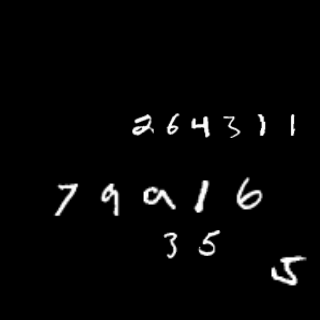 264311
79a16
35
5